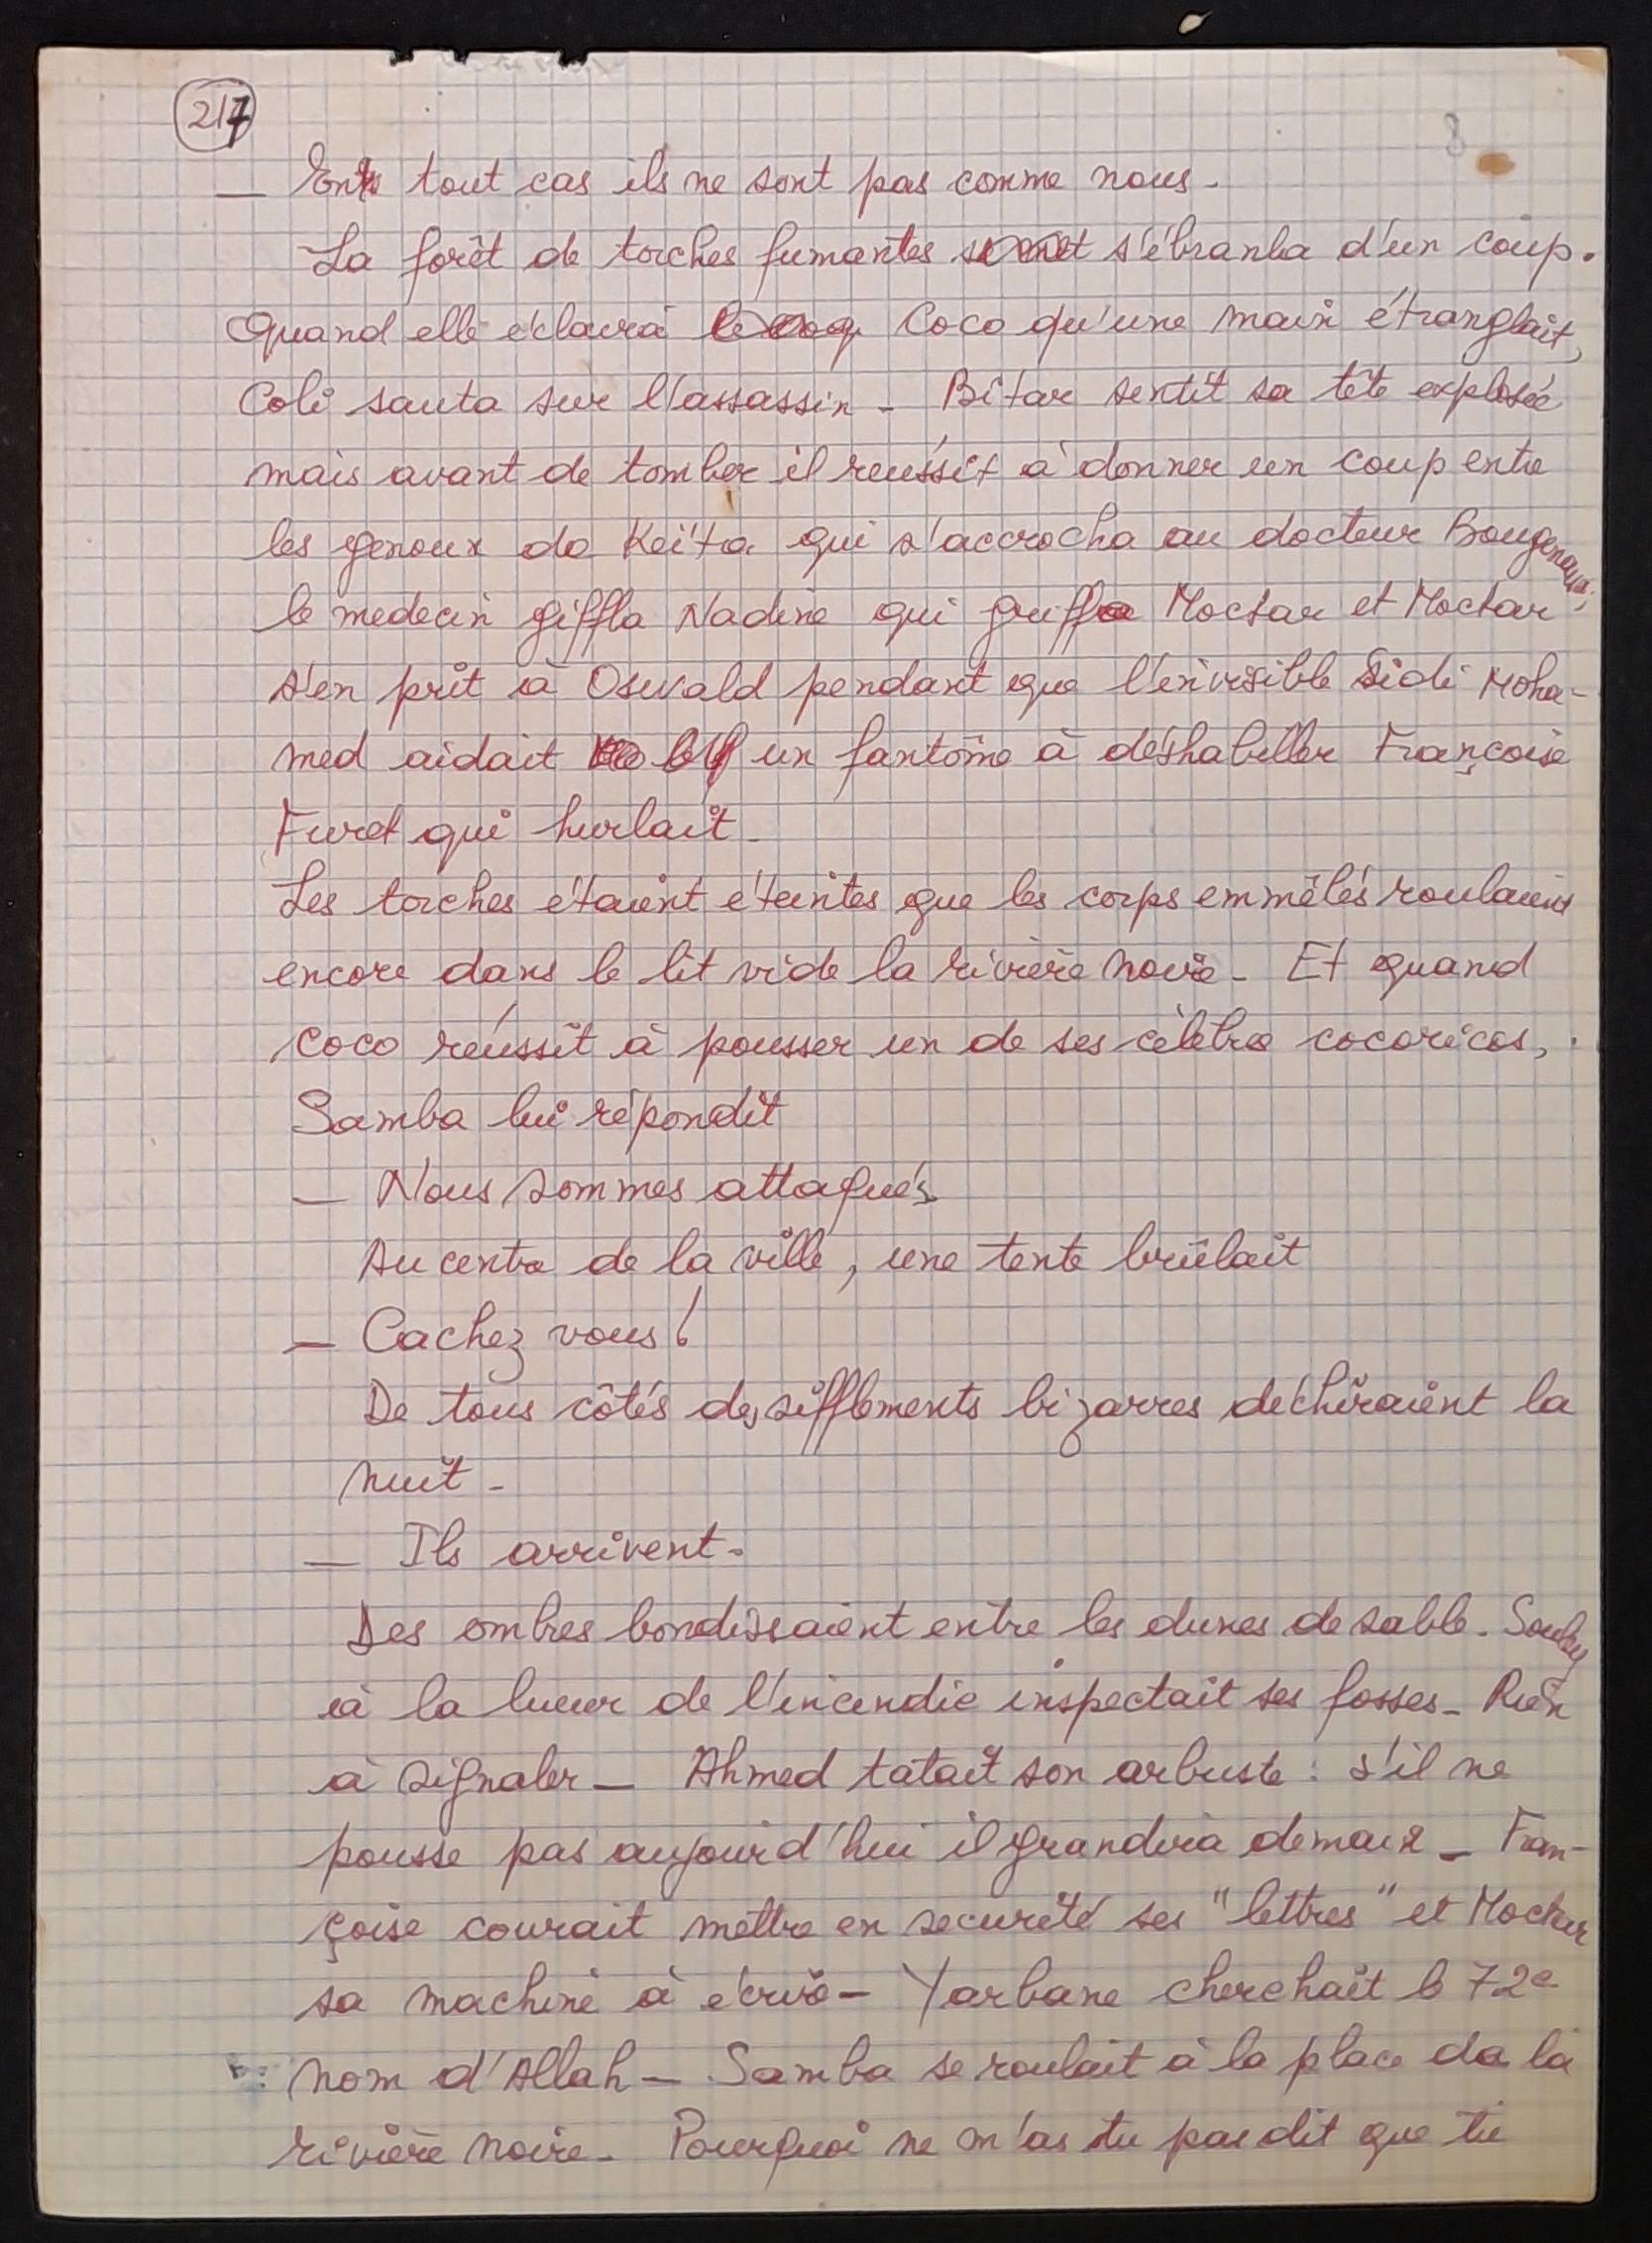 217
8
— En tout cas ils ne sont pas comme nous.
La forêt de torches fumantes se met s'ébranla d'un coup.
Quand elle éclaira le coq Coco qu'une main étranglait,
Coli sauta sur l'assassin - Bitar sentit sa tête explosée
mais avant de tomber il réussit à donner un coup entre
les genoux de Keita qui s'accrocha au docteur Bougenaud;
le medecin giffla Nadine qui griffa Moctar et Moctar
s'en prit à Oswald pendant que l'invisible Sidi Moha-
med aidait un fantôme à déshabiller Françoise
Furet qui hurlait -
Les torches étaient éteintes que les corps emmêlés roulaient
encore dans le lit vide la rivière noire - Et quand
Coco réussit à pousser un de ses célèbre cocoricos,
Samba lui répondit
— Nous sommes attaqués
Au centre de la ville, une tente brûlait
— Cachez vous!
De tous côtés des sifflements bizarres déchiraient la
nuit -
— Ils arrivent.
Des ombres bondissaient entre les dunes de sable. Souley
à la lueur de l'incendie inspectait ses fosses - Rien
à signaler — Ahmed tatait son arbuste : s'il ne
pousse pas aujourd'hui il grandira demain - Fran-
çoise courait mettre en securité ses "lettres" et Moctar
sa machine à écrire - Yarbane cherchait le 72e
nom d'Allah — Samba se roulait à la place de la
rivière noire - Pourquoi ne m'as tu pas dit que tu